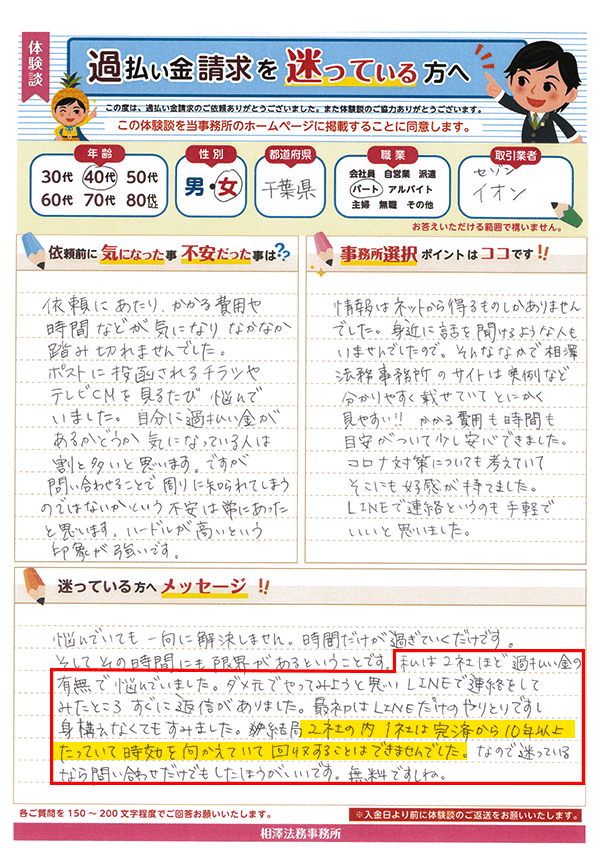 体験談
過払い金請求を迷っている方へ
この度は、過払い金請求のご依頼ありがとうございました。また体験談のご協力ありがとうございます。
この体験談を当事務所のホームページに掲載することに同意します。
年齢
30代 40代 50代
60代 70代 80代以上
性別
男・女
都道府県
千葉県
職業
会社員 自営業 派遣
パート アルバイト
主婦 無職 その他
取引業者
セゾン
イオン
お答えいただける範囲で構いません。
依頼前に気になった事 不安だった事は??
依頼にあたり、かかる費用や
時間などが気になりなかなか
踏み切れませんでした。
ポストに投函されるチラシや
テレビCMを見るたび悩んで
いました。自分に過払い金が
あるかどうか気になっている人は
割と多いと思います。ですが
問い合わせることで周りに知られてしまう
のではないかという不安は常にあった
と思います。ハードルが高いという
印象が強いです。
事務所選択ポイントはココです!!
情報はネットから得るものしかありません
でした。身近に話を聞けるような人も
いませんでしたので。そんななかで相澤
法務事務所のサイトは実例など
分かりやすく載せていてとにかく
見やすい!! かかる費用も時間も
目安がついて少し安心できました。
コロナ対策についても考えていて
そこにも好感が持てました。
LINEで連絡というのも手軽で
いいと思いました。
迷っている方へメッセージ!!
悩んでいても一向に解決しません。時間だけが過ぎていくだけです。
そしてその時間にも限界があるということです。私は2社ほど過払い金の
有無で悩んでいました。ダメ元でやってみようと思いLINEで連絡をして
みたところすぐに返信がありました。最初はLINEだけのやりとりですし
身構えなくてもすみました。結局2社の内1社は完済から10年以上
たっていて時効を向かえていて回収することはできませんでした。なので迷っている
なら問い合わせだけでもしたほうがいいです。無料ですしね。
各ご質問を150～200文字程度でご回答お願いいたします。
※入金日より前に体験談のご返送をお願いいたします。
相澤法務事務所